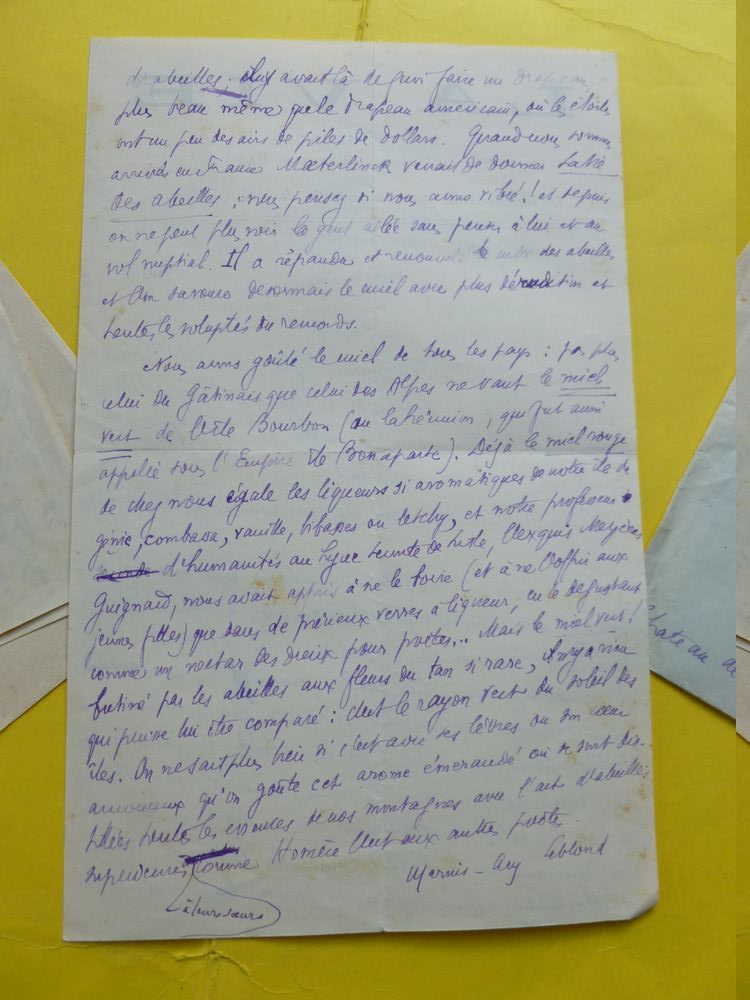 d'abeilles. Il y avait là de quoi faire un drapeau
plus beau même que le drapeau américain, où les étoiles
ont un peu des airs de piles de dollars. Quand nous sommes
arrivés en France Mæterlinck venait de donner La Vie
des abeilles, vous pensez si nous avons vibré! et depuis
on ne peut plus voir la gent ailée sans penser à lui et au
vol nuptial. Il a répandu et renouvelé le culte des abeilles
et l'on savoure désormais le miel avec plus d'érudition et
toutes les voluptés du remords.
Nous avons goûté le miel de tous les pays : pas plus
celui du Gâtinais que celui des Alpes ne vaut le miel
vert de l'île Bourbon (ou la Réunion, qui fut aussi
appelée sous l'Empire île Bonaparte). Déjà le miel rouge
de chez nous égale les liqueurs si aromatiques de notre île de
génie, combava, vanille, bibasses ou letchy, et notre professeur
d'humanités au lycée Leconte de Lisle, l'exquis Mézières
Guignard, nous avait appris à ne le boire (et à ne l'offrir aux
jeunes filles) que dans de précieux verres à liqueur, en le dégustant
comme un nectar des dieux pour poètes... Mais le miel vert!
butiné par les abeilles aux fleurs du tan si rare, il n'y a rien
qui puisse lui être comparé : c'est le rayon vert du soleil des
îles. On ne sait plus bien si c'est avec ses lèvres ou son cœur
amoureux qu'on goûte cet arome émeraudé où se sont dis-
tillées toutes les essences de nos montagnes avec l'art d'abeilles
supérieures à leurs sœurs comme Homère l'est aux autres poètes.
Marius-Ary Leblond
chateau de